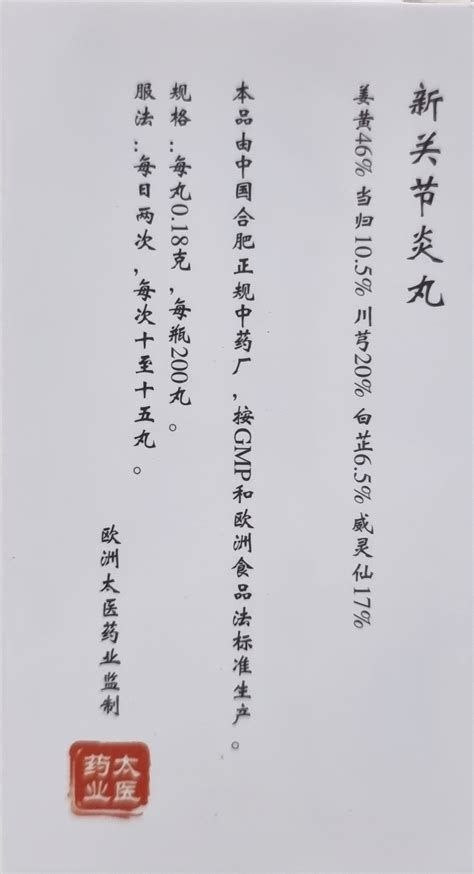 新关节炎丸
姜黄46% 当归10.5% 川芎20% 白芷6.5% 威灵仙17%
本品由中国合肥正规中药厂，按GMP和欧洲食品法标准生产。
规格：每丸0.18克，每瓶200丸。
服法：每日两次，每次十至十五丸。
欧洲太医药业监制
太医
药业